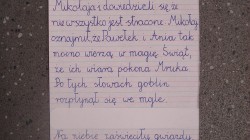 Mikołaja i dowiedzieli się, że
nie wszystko jest stracone. Mikołaj
oznajmił, że Pawełek i Ania tak
mocno wierzą w magię Świąt,
że ich wiara pokona Mruka.
Po tych słowach goblin
rozpłynął się we mgle.
Na niebie zaświeciły gwiazdy